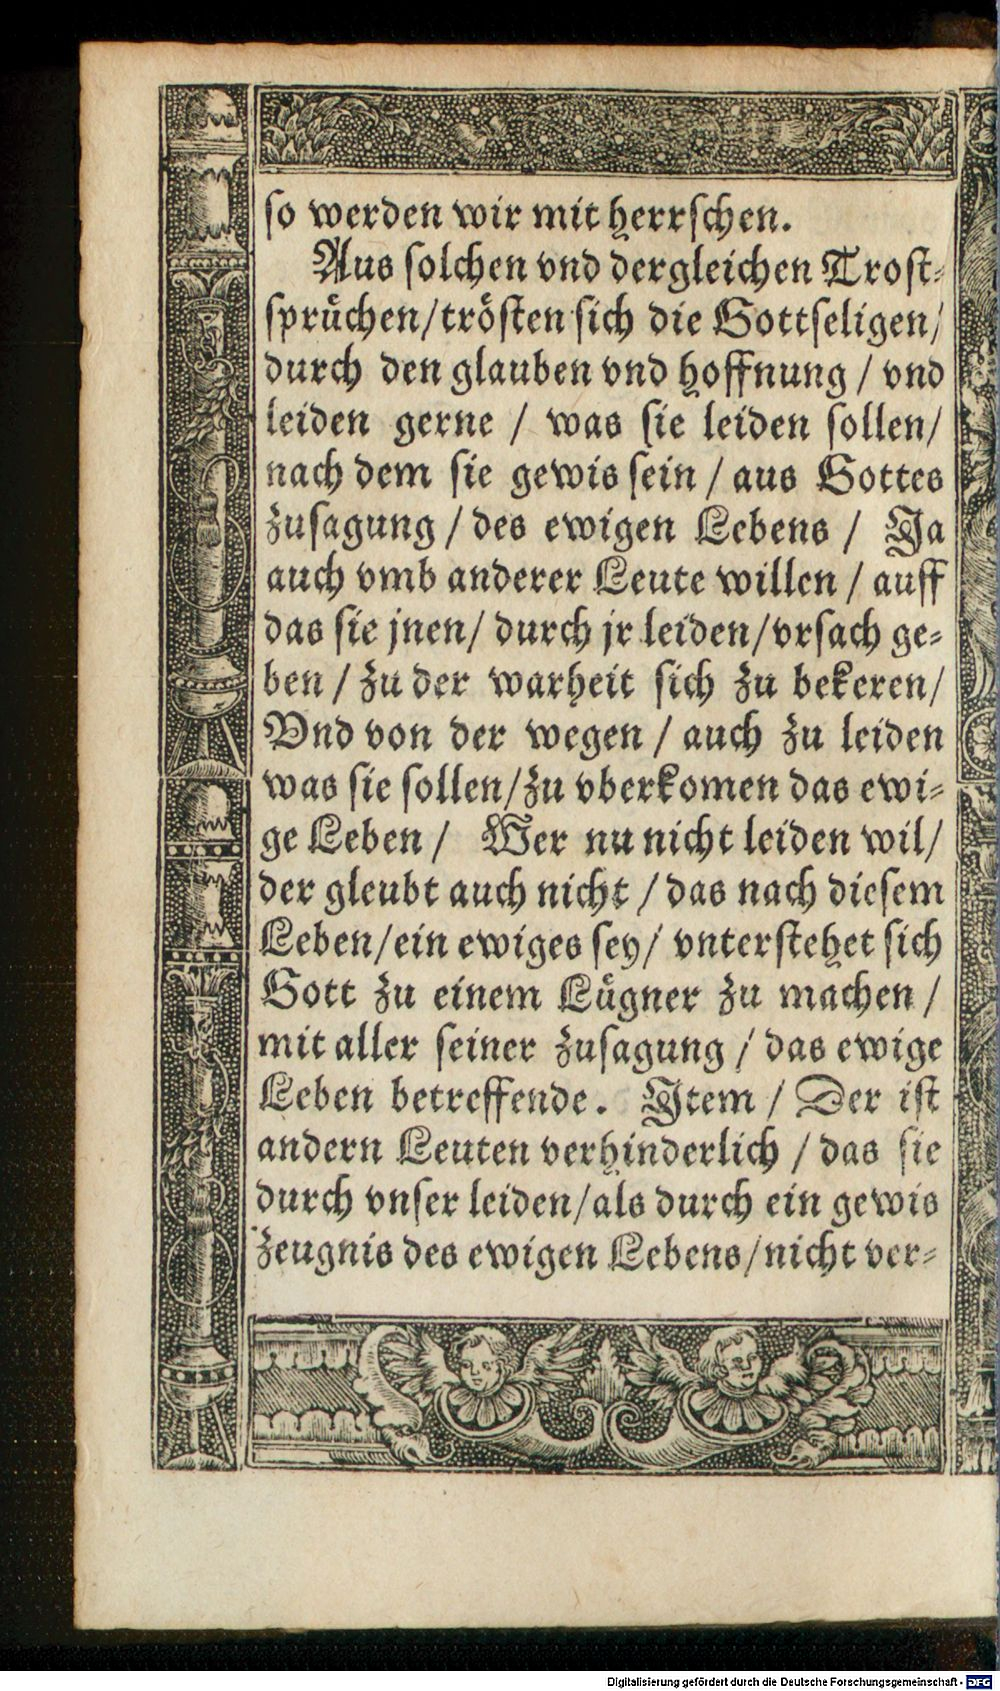 so werden wir mit herrschen.
Aus solchen vnd dergleichen Trost-
sprüchen/trösten sich die Gottseligen/
durch den glauben vnd hoffnung / vnd
leiden gerne / was sie leiden sollen/
nach dem sie gewis sein / aus Gottes
zusagung / des ewigen Lebens / Ja
auch vmb anderer Leute willen / auff
das sie jnen/ durch jr leiden/vrsach ge-
ben / zu der warheit sich zu bekeren/
Vnd von der wegen / auch zu leiden
was sie sollen/zu vberkomen das ewi-
ge Leben / Wer nu nicht leiden wil/
der gleubt auch nicht / das nach diesem
Leben/ein ewiges sey/ vnterstehet sich
Gott zu einem Lügner zu machen /
mit aller seiner zusagung / das ewige
Leben betreffende. Jtem / Der ist
andern Leuten verhinderlich / das sie
durch vnser leiden/als durch ein gewis
zeugnis des ewigen Lebens/nicht ver-
Digitalisierung gefördert durch die Deutsche Forschungsgemeinschaft - DFG